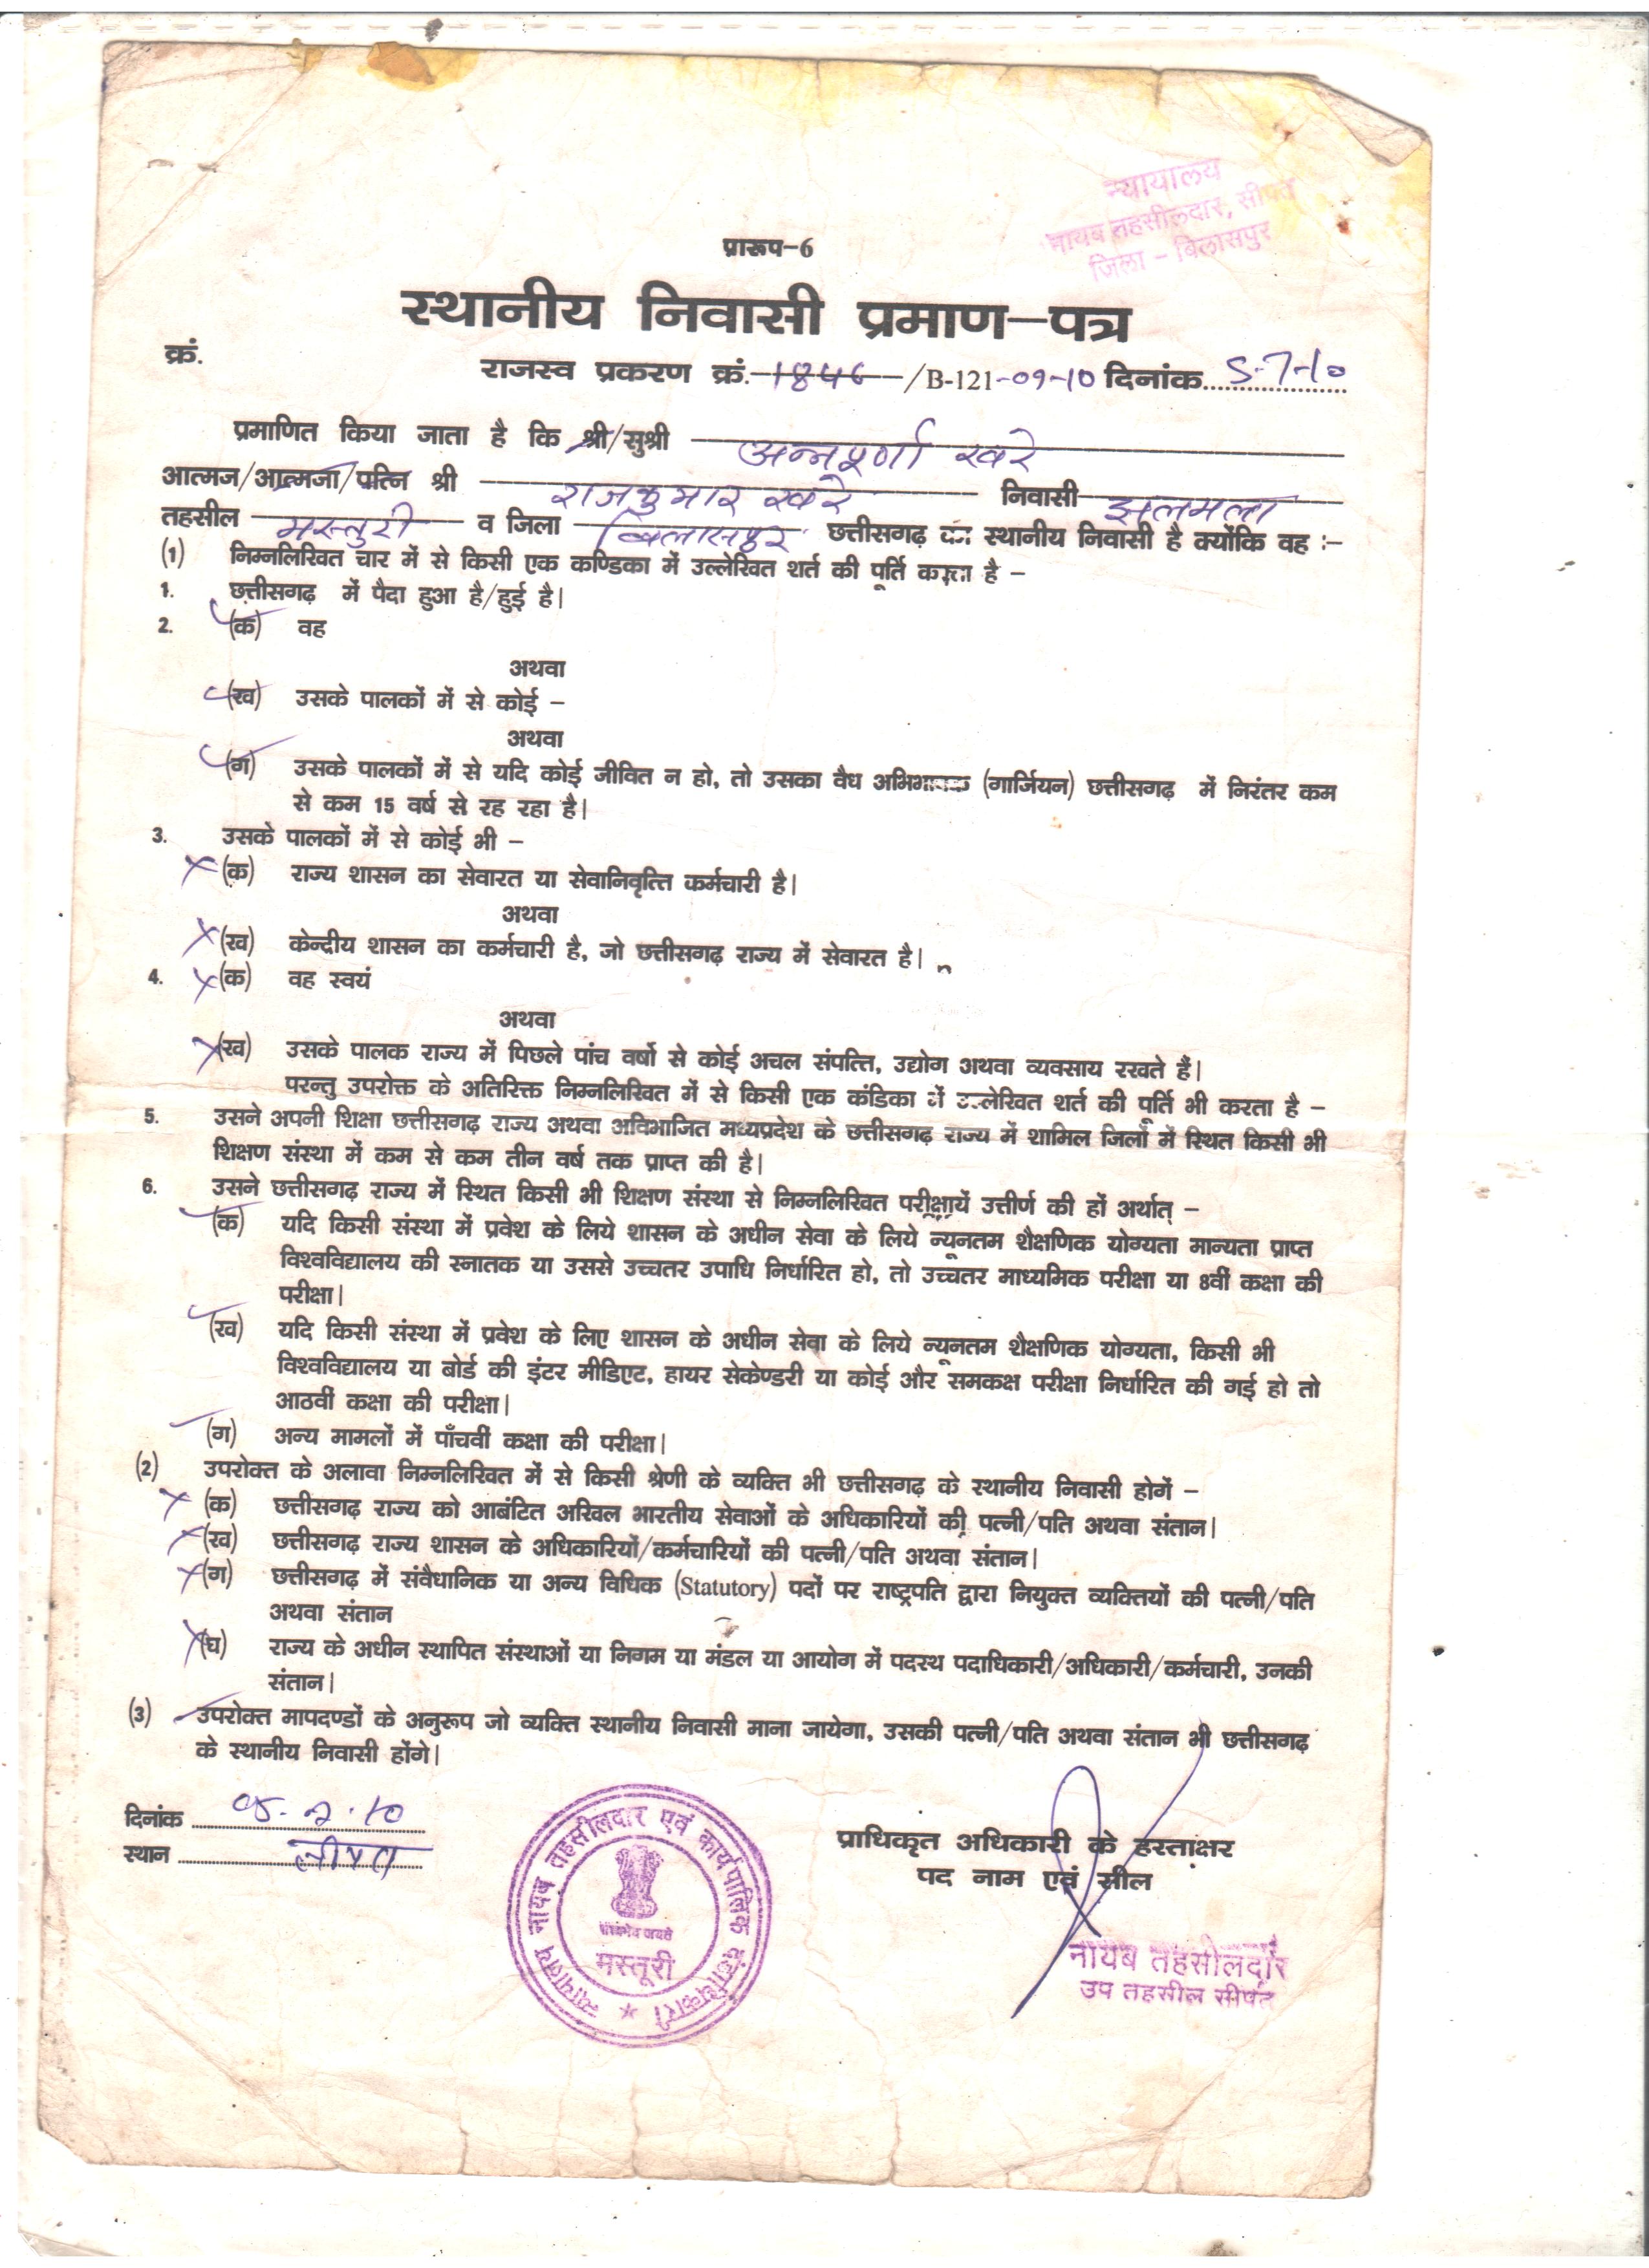 न्यायालय
नायब तहसीलदार, सीपत
जिला - बिलासपुर
प्रारूप-6
स्थानीय निवासी प्रमाण-पत्र
क्रं.
राजस्व प्रकरण क्रं. 1846 /B-121-09-10 दिनांक 5-7-10
प्रमाणित किया जाता है कि श्री/सुश्री अन्नपूर्णा खरे
आत्मज/आत्मजा/पत्नि श्री राजकुमार खरे निवासी झलमला
तहसील मस्तुरी व जिला बिलासपुर छत्तीसगढ़ का स्थानीय निवासी है क्योंकि वह :-
(1) निम्नलिखित चार में से किसी एक कण्डिका में उल्लेखित शर्त की पूर्ति करता है -
1. छत्तीसगढ़ में पैदा हुआ है/हुई है।
2. (क) वह
अथवा
(ख) उसके पालकों में से कोई -
अथवा
(ग) उसके पालकों में से यदि कोई जीवित न हो, तो उसका वैध अभिभावक (गार्जियन) छत्तीसगढ़ में निरंतर कम
से कम 15 वर्ष से रह रहा है।
3. उसके पालकों में से कोई भी -
(क) राज्य शासन का सेवारत या सेवानिवृत्ति कर्मचारी है।
अथवा
(ख) केन्द्रीय शासन का कर्मचारी है, जो छत्तीसगढ़ राज्य में सेवारत है।
4. (क) वह स्वयं
अथवा
(ख) उसके पालक राज्य में पिछले पांच वर्षो से कोई अचल संपत्ति, उद्योग अथवा व्यवसाय रखते हैं।
परन्तु उपरोक्त के अतिरिक्त निम्नलिखित में से किसी एक कंडिका में उल्लेखित शर्त की पूर्ति भी करता है -
5. उसने अपनी शिक्षा छत्तीसगढ़ राज्य अथवा अविभाजित मध्यप्रदेश के छत्तीसगढ़ राज्य में शामिल जिलों में स्थित किसी भी
शिक्षण संस्था में कम से कम तीन वर्ष तक प्राप्त की है।
6. उसने छत्तीसगढ़ राज्य में स्थित किसी भी शिक्षण संस्था से निम्नलिखित परीक्षायें उत्तीर्ण की हों अर्थात् -
(क) यदि किसी संस्था में प्रवेश के लिये शासन के अधीन सेवा के लिये न्यूनतम शैक्षणिक योग्यता मान्यता प्राप्त
विश्वविद्यालय की स्नातक या उससे उच्चतर उपाधि निर्धारित हो, तो उच्चतर माध्यमिक परीक्षा या 8वीं कक्षा की
परीक्षा।
(ख) यदि किसी संस्था में प्रवेश के लिए शासन के अधीन सेवा के लिये न्यूनतम शैक्षणिक योग्यता, किसी भी
विश्वविद्यालय या बोर्ड की इंटर मीडिएट, हायर सेकेण्डरी या कोई और समकक्ष परीक्षा निर्धारित की गई हो तो
आठवीं कक्षा की परीक्षा।
(ग) अन्य मामलों में पाँचवीं कक्षा की परीक्षा।
(2) उपरोक्त के अलावा निम्नलिखित में से किसी श्रेणी के व्यक्ति भी छत्तीसगढ़ के स्थानीय निवासी होगें -
(क) छत्तीसगढ़ राज्य को आबंटित अखिल भारतीय सेवाओं के अधिकारियों की पत्नी/पति अथवा संतान।
(ख) छत्तीसगढ़ राज्य शासन के अधिकारियों/कर्मचारियों की पत्नी/पति अथवा संतान।
(ग) छत्तीसगढ़ में संवैधानिक या अन्य विधिक (Statutory) पदों पर राष्ट्रपति द्वारा नियुक्त व्यक्तियों की पत्नी/पति
अथवा संतान
(घ) राज्य के अधीन स्थापित संस्थाओं या निगम या मंडल या आयोग में पदस्थ पदाधिकारी/अधिकारी/कर्मचारी, उनकी
संतान।
(3) उपरोक्त मापदण्डों के अनुरूप जो व्यक्ति स्थानीय निवासी माना जायेगा, उसकी पत्नी/पति अथवा संतान भी छत्तीसगढ़
के स्थानीय निवासी होंगे।
दिनांक 05.7.10
स्थान सीपत
न्यायालय नायब तहसीलदार एवं कार्यपालिक दंडाधिकारी
सत्यमेव जयते
मस्तूरी
प्राधिकृत अधिकारी के हस्ताक्षर
पद नाम एवं सील
नायब तहसीलदार
उप तहसील सीपत